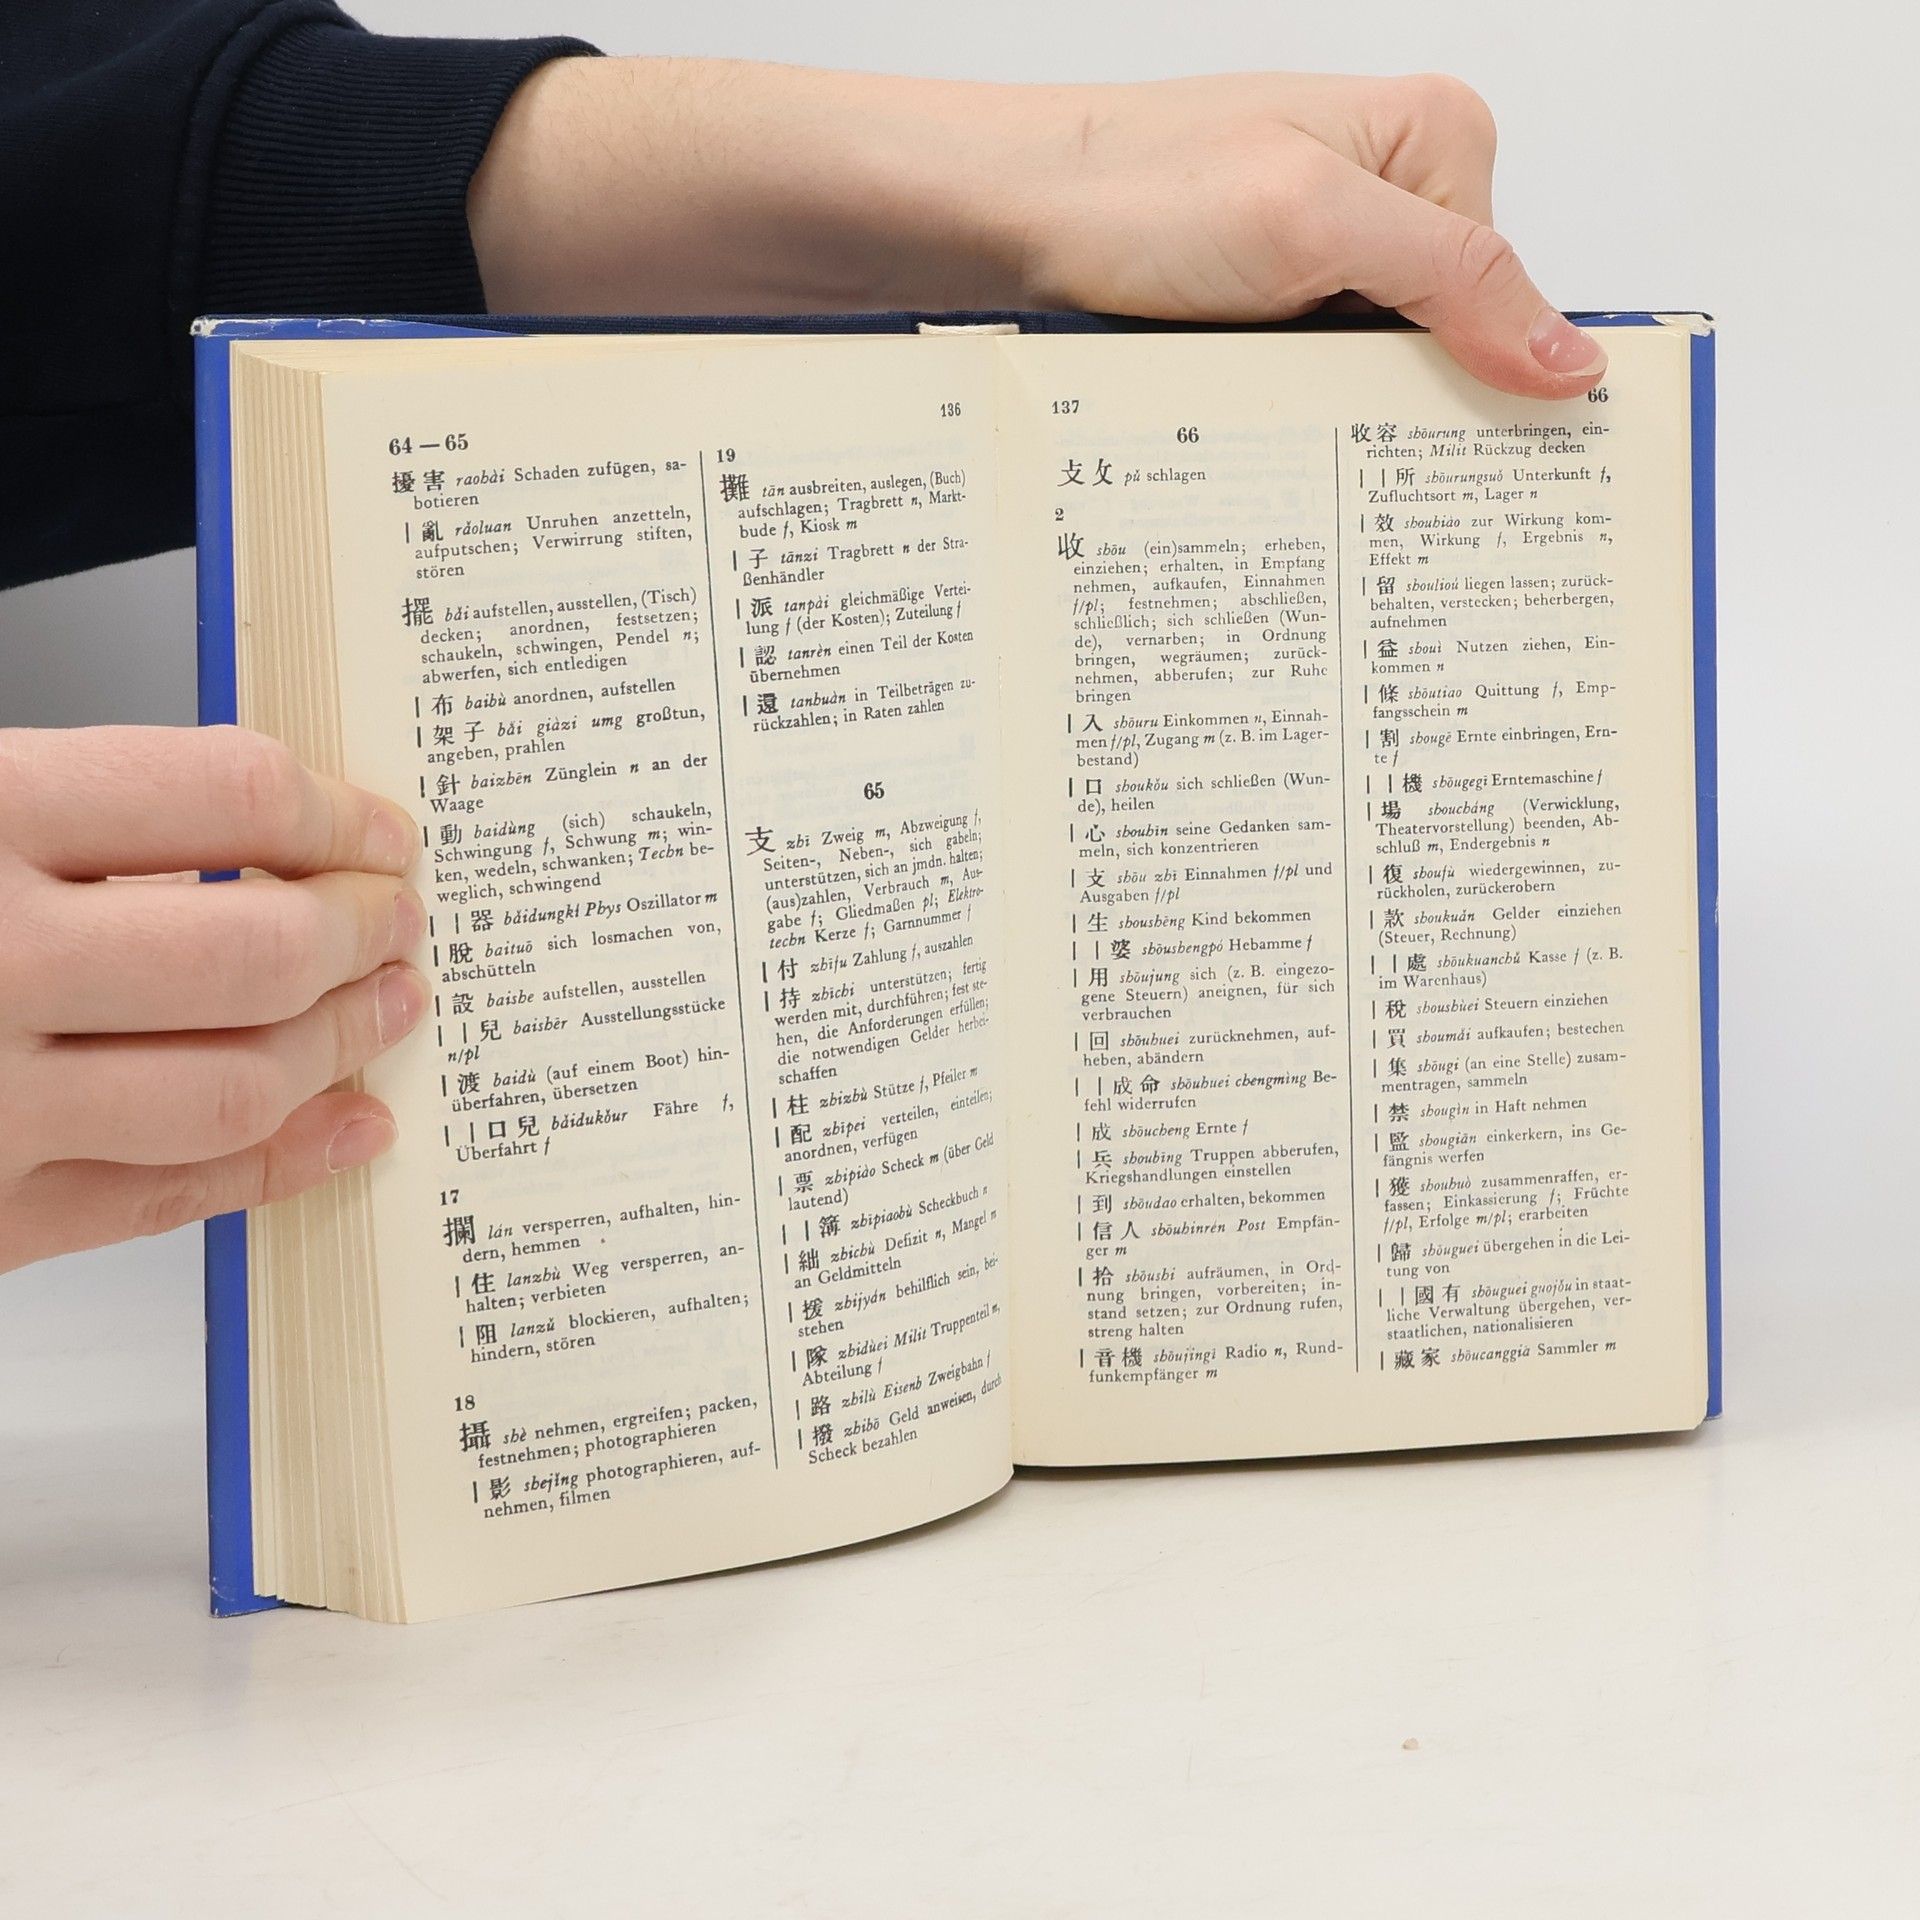 136
64 — 65
擾害 raohài Schaden zufügen, sa-
botieren
| 亂 rǎoluan Unruhen anzetteln,
aufputschen; Verwirrung stiften,
stören
擺 bǎi aufstellen, ausstellen, (Tisch)
decken; anordnen, festsetzen;
schaukeln, schwingen, Pendel n;
abwerfen, sich entledigen
| 布 baibù anordnen, aufstellen
| 架子 bǎi giàzi umg großtun,
angeben, prahlen
| 針 baizhēn Zünglein n an der
Waage
| 動 baidùng (sich) schaukeln,
Schwingung f, Schwung m; win-
ken, wedeln, schwanken; Techn be-
weglich, schwingend
| | 器 bǎidungki Phys Oszillator m
| 脫 baituō sich losmachen von,
abschütteln
| 設 baishe aufstellen, ausstellen
| | 兒 baishēr Ausstellungsstücke
n/pl
| 渡 baidù (auf einem Boot) hin-
überfahren, übersetzen
| | 口兒 bǎidukǒur Fähre f,
Überfahrt f
17
攔 lán versperren, aufhalten, hin-
dern, hemmen
| 住 lanzhù Weg versperren, an-
halten; verbieten
| 阻 lanzǔ blockieren, aufhalten;
hindern, stören
18
攝 shè nehmen, ergreifen; packen,
festnehmen; photographieren
| 影 shejǐng photographieren, auf-
nehmen, filmen
19
攤 tān ausbreiten, auslegen, (Buch)
aufschlagen; Tragbrett n, Markt-
bude f, Kiosk m
| 子 tānzi Tragbrett n der Stra-
ßenhändler
| 派 tanpài gleichmäßige Vertei-
lung f (der Kosten); Zuteilung f
| 認 tanrèn einen Teil der Kosten
übernehmen
| 還 tanhuàn in Teilbeträgen zu-
rückzahlen; in Raten zahlen
65
支 zhī Zweig m, Abzweigung f,
Seiten-, Neben-, sich gabeln;
unterstützen, sich an jmdn. halten;
(aus)zahlen, Verbrauch m, Aus-
gabe f; Gliedmaßen pl; Elektro-
techn Kerze f; Garnnummer f
| 付 zhīfu Zahlung f, auszahlen
| 持 zhīchi unterstützen; fertig
werden mit, durchführen; fest ste-
hen, die Anforderungen erfüllen;
die notwendigen Gelder herbei-
schaffen
| 柱 zhizhù Stütze f, Pfeiler m
| 配 zhīpei verteilen, einteilen;
anordnen, verfügen
| 票 zhipiào Scheck m (über Geld
lautend)
| | 簿 zhīpiaobù Scheckbuch n
| 絀 zhichù Defizit n, Mangel m
an Geldmitteln
| 援 zhijyán behilflich sein, bei-
stehen
| 隊 zhidùei Milit Truppenteil m,
Abteilung f
| 路 zhilù Eisenb Zweigbahn f
| 撥 zhibō Geld anweisen, durch
Scheck bezahlen
137
66
66
攴攵 pǔ schlagen
2
收 shōu (ein)sammeln; erheben,
einziehen; erhalten, in Empfang
nehmen, aufkaufen, Einnahmen
f/pl; festnehmen; abschließen,
schließlich; sich schließen (Wun-
de), vernarben; in Ordnung
bringen, wegräumen; zurück-
nehmen, abberufen; zur Ruhe
bringen
| 入 shōuru Einkommen n, Einnah-
men f/pl, Zugang m (z. B. im Lager-
bestand)
| 口 shoukǒu sich schließen (Wun-
de), heilen
| 心 shouhīn seine Gedanken sam-
meln, sich konzentrieren
| 支 shōu zhī Einnahmen f/pl und
Ausgaben f/pl
| 生 shoushēng Kind bekommen
| | 婆 shōushengpó Hebamme f
| 用 shōujung sich (z. B. eingezo-
gene Steuern) aneignen, für sich
verbrauchen
| 回 shōuhuei zurücknehmen, auf-
heben, abändern
| | 成命 shōuhuei chengmìng Be-
fehl widerrufen
| 成 shōucheng Ernte f
| 兵 shoubīng Truppen abberufen,
Kriegshandlungen einstellen
| 到 shōudao erhalten, bekommen
| 信人 shōuhinrén Post Empfän-
ger m
| 拾 shōushi aufräumen, in Ord-
nung bringen, vorbereiten; in-
stand setzen; zur Ordnung rufen,
streng halten
| 音機 shōujīngi Radio n, Rund-
funkempfänger m
收容 shōurung unterbringen, ein-
richten; Milit Rückzug decken
| | 所 shōurungsuǒ Unterkunft f,
Zufluchtsort m, Lager n
| 效 shouhiào zur Wirkung kom-
men, Wirkung f, Ergebnis n,
Effekt m
| 留 shoulioú liegen lassen; zurück-
behalten, verstecken; beherbergen,
aufnehmen
| 益 shouì Nutzen ziehen, Ein-
kommen n
| 條 shōutiao Quittung f, Emp-
fangsschein m
| 割 shougē Ernte einbringen, Ern-
te f
| | 機 shōugegī Erntemaschine f
| 場 shoucháng (Verwicklung,
Theatervorstellung) beenden, Ab-
schluß m, Endergebnis n
| 復 shoufù wiedergewinnen, zu-
rückholen, zurückerobern
| 款 shoukuǎn Gelder einziehen
(Steuer, Rechnung)
| | 處 shōukuanchǔ Kasse f (z. B.
im Warenhaus)
| 稅 shoushùei Steuern einziehen
| 買 shoumǎi aufkaufen; bestechen
| 集 shōugi (an eine Stelle) zusam-
mentragen, sammeln
| 禁 shougìn in Haft nehmen
| 監 shougiān einkerkern, ins Ge-
fängnis werfen
| 獲 shouhuò zusammenraffen, er-
fassen; Einkassierung f; Früchte
f/pl, Erfolge m/pl; erarbeiten
| 歸 shōuguei übergehen in die Lei-
tung von
| | 國有 shōuguei guojǒu in staat-
liche Verwaltung übergehen, ver-
staatlichen, nationalisieren
| 藏家 shōucanggiā Sammler m